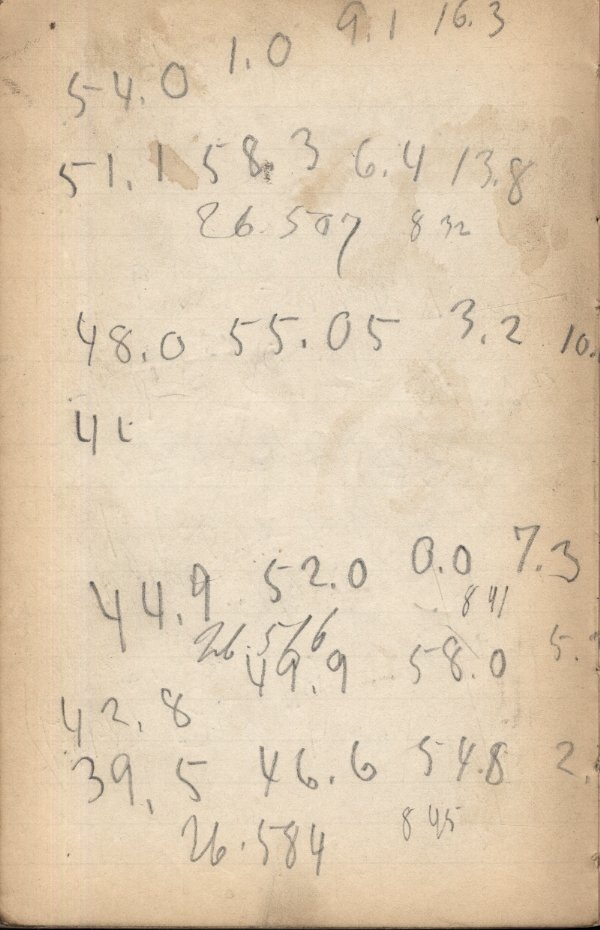 54.0 1.0 9.1 16.3
51.1 58.3 6.4 13.8
26.507 832
48.0 55.05 3.2 10.
4
44.9 52.0 0.0 7.3
26.576 841
42.8 49.9 58.0 5.
39.5 46.6 54.8 2.
26.584 845